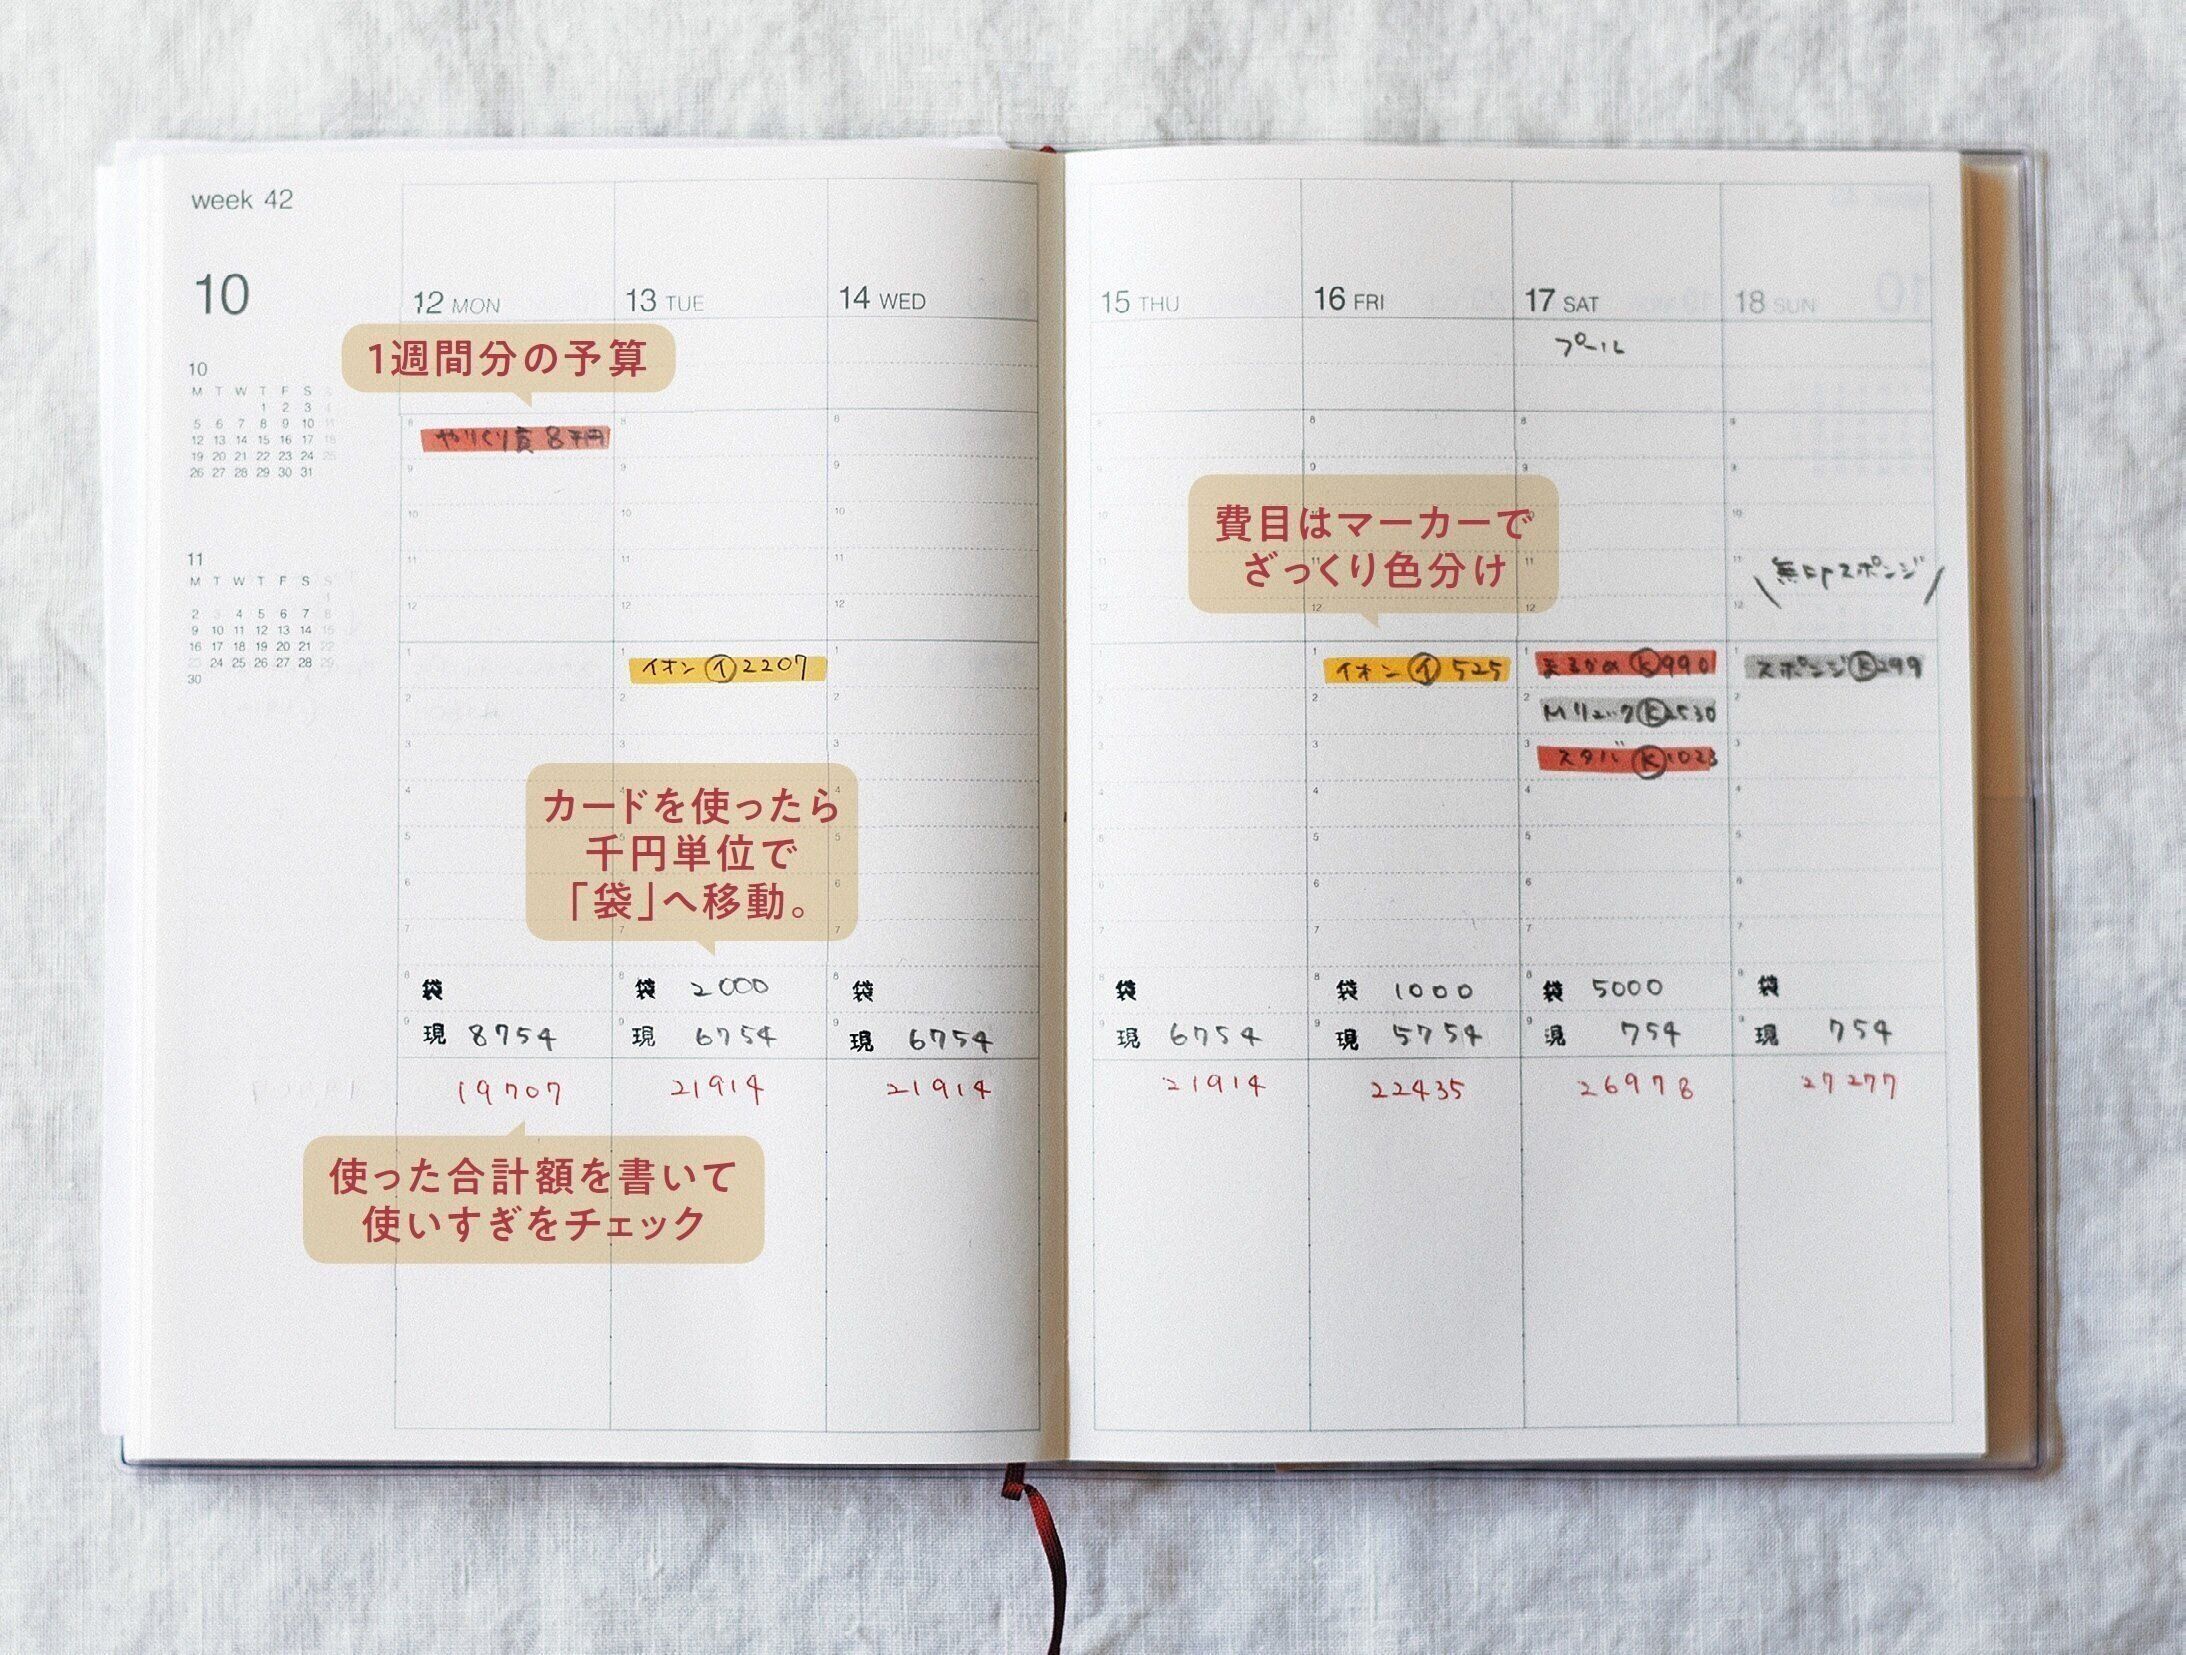 week 42
10
10
M T W T F S
1 2 3
5 6 7 8 9 10 11
12 13 14 15 16 17 18
19 20 21 22 23 24 25
26 27 28 29 30 31
11
M T W T F S S
1
2 3 4 5 6 7 8
9 10 11 12 13 14 15
16 17 18 19 20 21 22
23 24 25 26 27 28 29
30
12 MON
13 TUE
14 WED
15 THU
16 FRI
17 SAT
18 SUN
プール
1週間分の予算
やりくり費 8千円
費目はマーカーで
ざっくり色分け
無印スポンジ
イオン イ 2207
イオン イ 525
まるかめ K 990
スポンジ K 299
Mリュック K 2530
スタバ K 1023
カードを使ったら
千円単位で
「袋」へ移動。
袋
袋 2000
袋
袋
袋 1000
袋 5000
袋
現 8754
現 6754
現 6754
現 6754
現 5754
現 754
現 754
19707
21914
21914
21914
22435
26978
27277
使った合計額を書いて
使いすぎをチェック